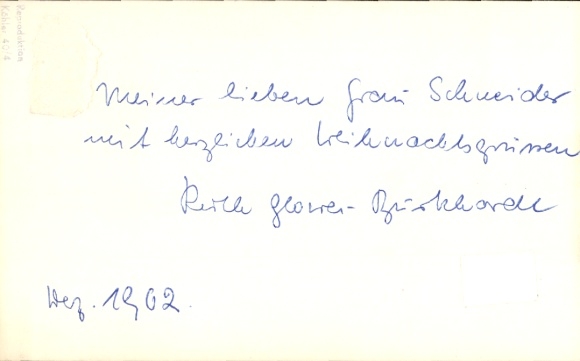 Reproduktion
Köhler 40/4
Meiner lieben Frau Schneider
mit herzlichen Weihnachtsgrüssen
Ruth Glower-Burkhardt
Dez. 1962.